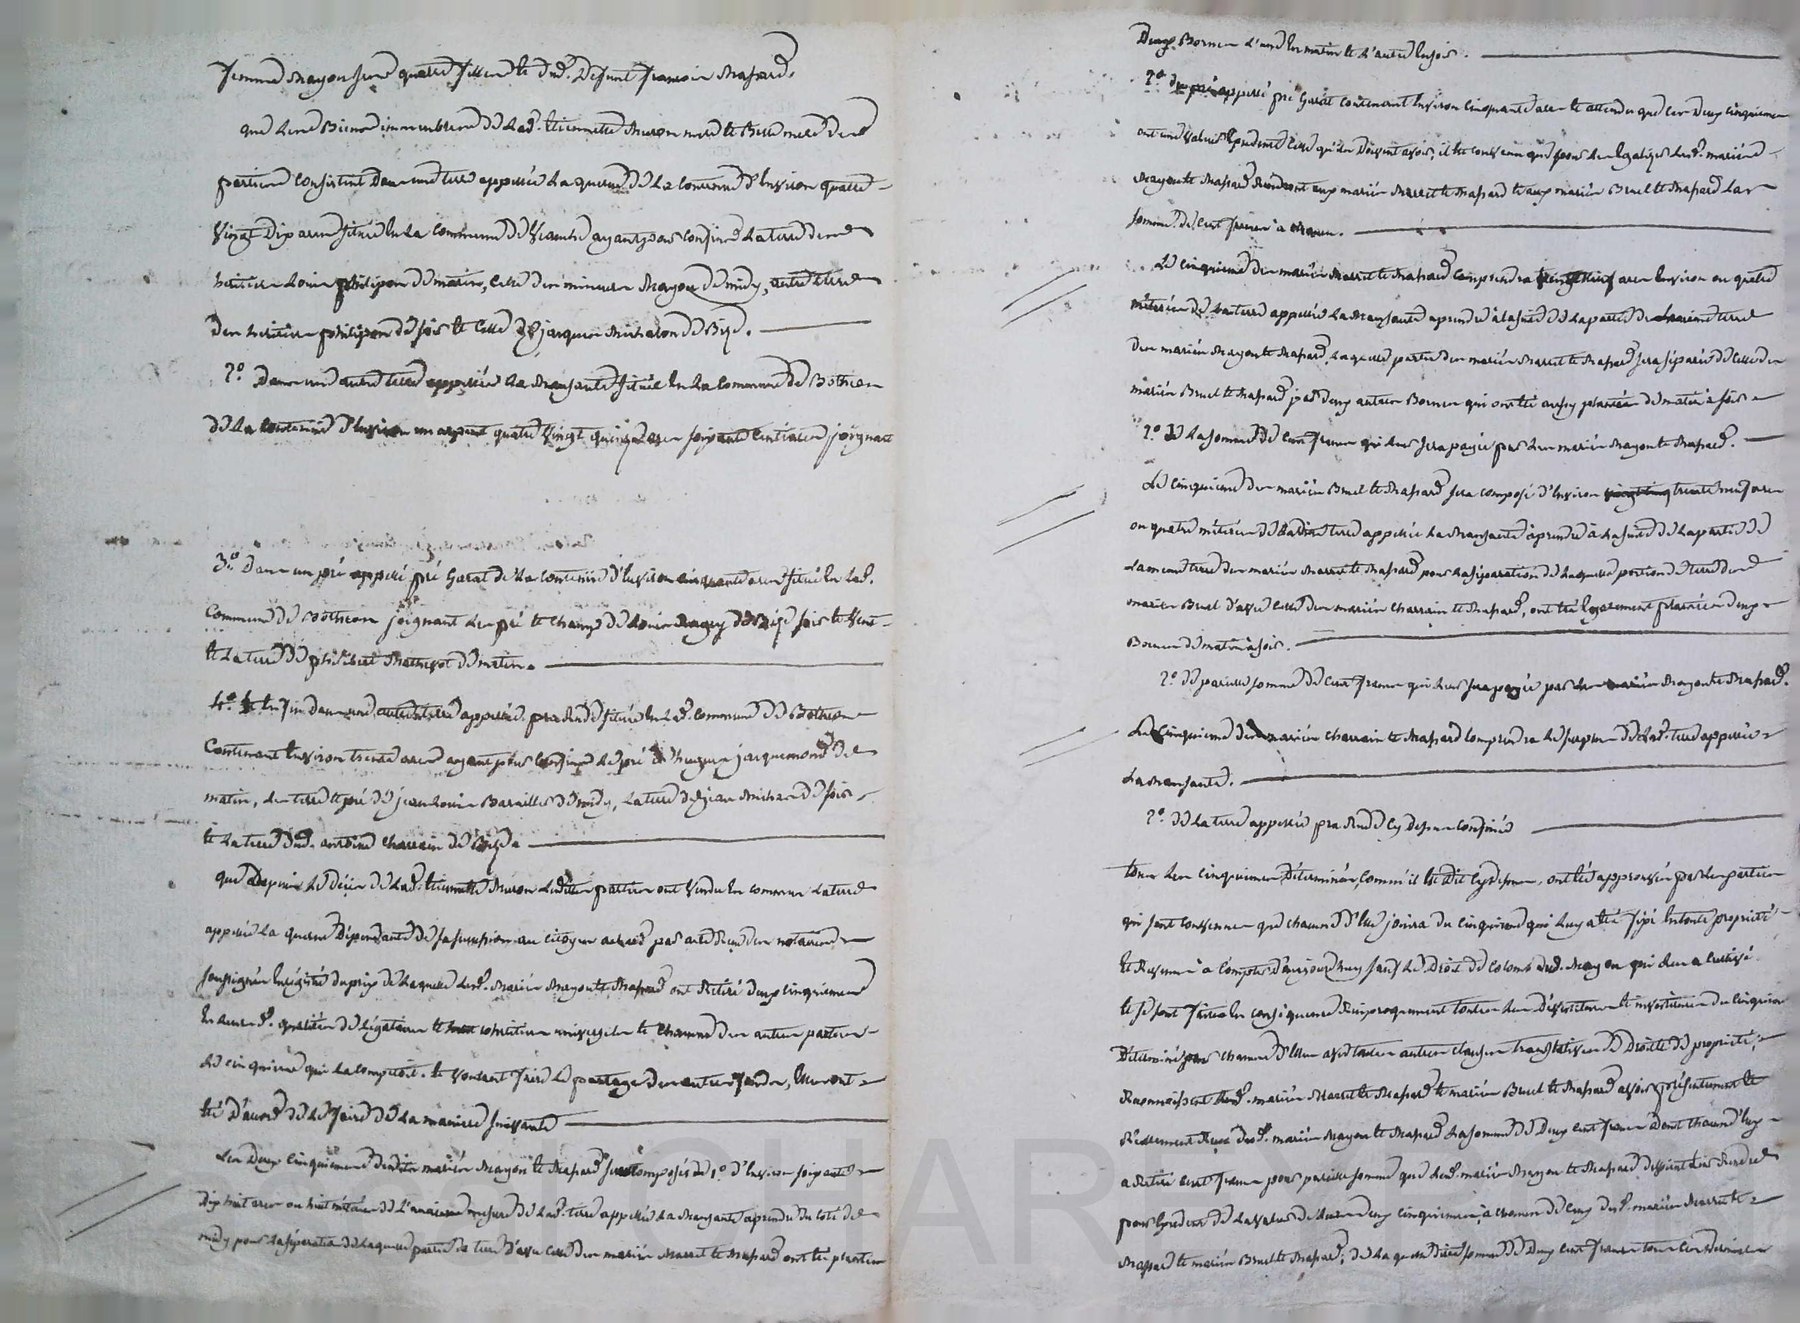 femme Mayon sont quatre filles de dud. defunt francois Chapard,
que les biens immeubles de lad. etiennette Miron mere et belle mere des
parties consistent dans une terre appellée la queue de la contenue d'environ quatre
vingt dix ares située en la commune de ayant pour confins la terre des
heritiers Louis philipon de matin, celle des mineurs Mayon de midy, autre terre
des heritiers philipon de soir et celle de jacques Michalon de bize.
2.º Dans une autre terre appellée la Mansante située en la commune de Bothéon
de la contenue d'environ un arpent quatre vingt quinze ares soixante centiares joignant
3.º Dans un pré appellé pré Garat de la contenue d'environ cinquante ares situé en lad.
commune de Bothéon joignant les pré et champ de Louis de bize soir et vent
et la terre de philibert de matin.
4.º et enfin dans une autre terre appellée située en lad. commune de Bothéon
contenant environ trente ares ayant pour confins le pré d'hugues jacquemond de
matin, les terre et pré de jean Louis Barailler de midy, la terre de jean Michard de soir
et la terre dud. antoine Charrain de bize.
que depuis le décès de lad. etiennette Miron lesdites parties ont vendu en commun la terre
appellée la queue dépendante de sa succession au citoyen par acte reçu des notaires
soussignés enregistré du prix de laquelle lesd. mariés Mayon et Chapard ont retiré deux cinquiemes
en leursd. qualités de légataire et heritiere universelle et chacune des autres parties
le cinquieme qui la competoit. et voulant faire le partage des autres fonds, elles ont
été d'accord de le faire de la maniere suivante
Les deux cinquiemes desdits mariés Mayon et Chapard sera composés de 1.º d'environ soixante
dix huit ares ou huit métérées de l'ancienne mesure de lad. terre appellée la Mansante aprendre du coté de
midy pour la séparation de laquelle partie de terre d'avec celle des mariés Marret et Chapard ont été plantées
Deux Bornes l'une en matin et l'autre en soir.
2.º du pré appellé pré Garat contenant environ cinquante ares et attendu que ces deux cinquiemes
ont une valeur excedente celle qu'ils doivent avoir, il est convenu que pour les egaliser lesd. mariés
Mayon et Chapard rendront aux mariés Marret et Chapard et aux mariés Bruel et Chapard la
somme de cent francs à chacun.
Le cinquieme des mariés Marret et Chapard comprendra ares environ ou quatre
métérées de la terre appellée la Mansante aprendre à la suite de la partie de terre
des mariés Mayon et Chapard, laquelle partie des mariés Marret et Chapard sera séparée de celle des
mariés Bruel et Chapard par deux autres Bornes qui ont été aussy plantées de matin à soir
2.º de la somme de cent francs qui leur sera payée par les mariés Mayon et Chapard.
Le cinquieme des mariés Bruel et Chapard sera composé d'environ trente neuf ares
ou quatre métérées de ladite terre appellée la Mansante aprendre à la suite de la partie de
la meme terre des mariés Marret et Chapard pour la séparation de laquelle portion de terre des
mariés Bruel d'avec celle des mariés Charrain et Chapard, ont été egalement plantées deux
Bornes de matin à soir.
2.º de pareille somme de cent francs qui leur sera payée par les mariés Mayon et Chapard.
Le cinquieme des mariés Charrain et Chapard comprendra le surplus de lad. terre appellée
la Mansante.
2.º de la terre appellée cy dessus confinée
tous les cinquiemes déterminés, comm'il est dit cy dessus, ont été approuvés par les parties
qui sont convenues que chacune d'elles jouira du cinquieme qui luy a été fixé en toute propriété
et à compter d'aujourd'huy sauf le droit de colons dud. Mayon qui les a cultivé
et se sont faites en conséquence reciproquement toutes les dévestitures et investitures du cinquieme
déterminé pour chacune d'elles avec toutes autres clauses translatives de droits de propriété,
Reconnoissent lesd. mariés Marret et Chapard et mariés Bruel et Chapard avoir présentement et
réellement reçu desd. mariés Mayon et Chapard la somme de deux cent francs dont chacun d'eux
a retiré cent francs pour pareille somme que lesd. mariés Mayon et Chapard devoient leur rendre
pour l'excedent de la valeur de leurs deux cinquiemes à chacun de ceux desd. mariés Marret et
Chapard et mariés Bruel et Chapard, de laquelle dite somme de deux cent francs tous ces derniers